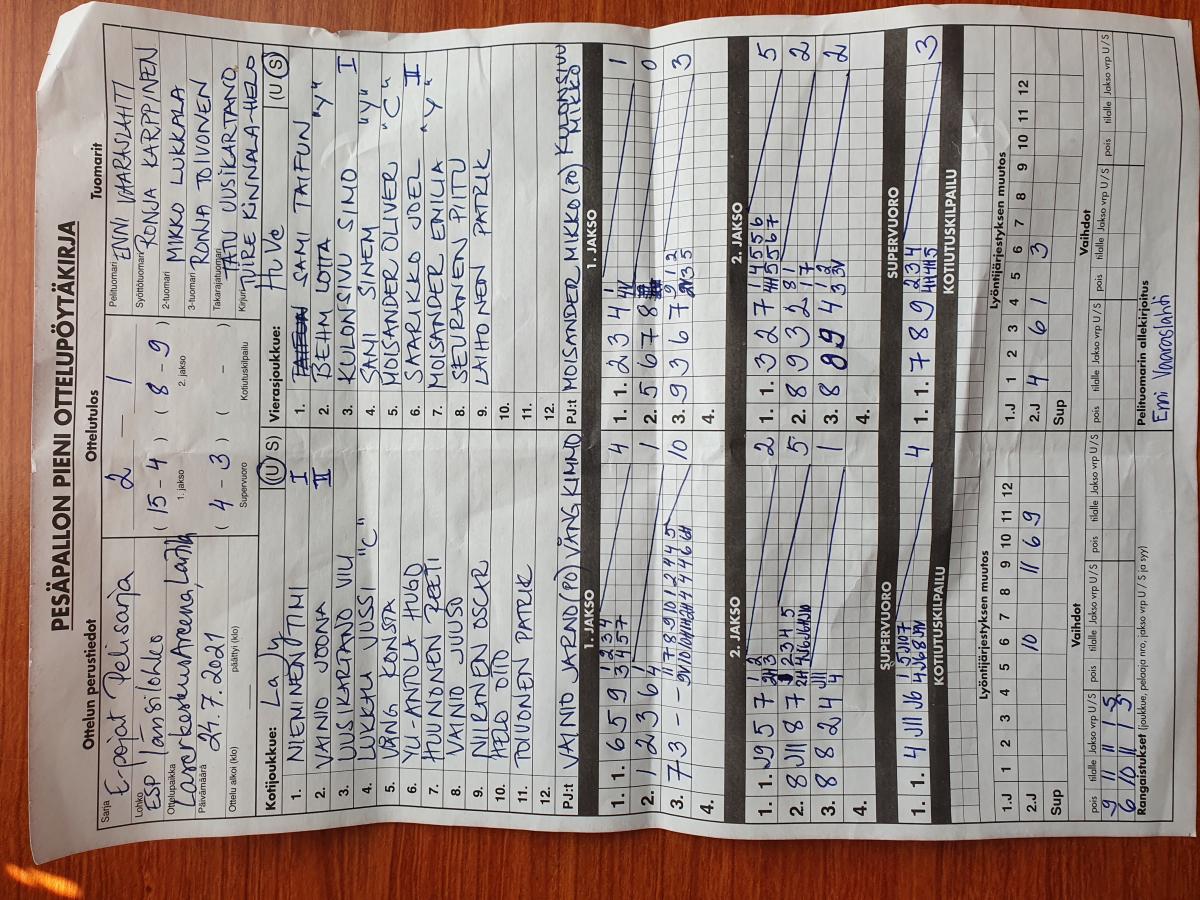 PESÄPALLON PIENI OTTELUPÖYTÄKIRJA
Ottelun perustiedot
Sarja E-pojat Pelisarja
Lohko ESP länsilohko
Ottelupaikka LaserkeskusAreena, Laitila
Päivämäärä 24.7.2021
Ottelu alkoi (klo) päättyi (klo)
Ottelutulos
2 – 1
( 15 - 4 ) ( 8 - 9 )
1. jakso 2. jakso
( 4 - 3 ) ( - )
Supervuoro Kotiutuskilpailu
Tuomarit
Pelituomari ENNI VAARASLAHTI
Syöttötuomari RONJA KARPPINEN
2-tuomari MIKKO LUKKALA
3-tuomari RONNA TOIVONEN
Takarajatuomari TATU UUSIKARTANO
Kirjuri TUIRE KINNALA-HELO
Kotijoukkue: LaJy (U S)
1. NIEMINEN TIMI I
2. VAINIO JOONA II
3. UUSIKARTANO VILI
4. LUKKALA JUSSI "C"
5. VÄNG KONSTA
6. YLI-ANTOLA HUGO
7. HUUNONEN PEETI
8. VAINIO JUUSO
9. NIIRANEN OSCAR
10. HELO OTTO
11. TOIVONEN PATRIK
12.
PJ:t VAINIO JARNO (PO) VÄNG KIMMO
Vierasjoukkue: HuVe (U S)
1. SAM TAIFUN
2. BEHM LOTTA "Y"
3. KULONSIVU SIMO I
4. SANI SINEM "Y"
5. MOISANDER OLIVER "C"
6. SAARIKKO JOEL II
7. MOISANDER EMILIA "Y"
8. SEURANEN PIITU
9. LAIHONEN PATRIK
10.
11.
12.
PJ:t MOISANDER MIKKO (PO) KULONSIVU MIKKO
1. JAKSO
1. 1. 6 5 9 4
2. 1 2 3 6 1
3. 7 3 - - 10
4.
1. JAKSO
1. 1. 2 3 4 1
2. 5 6 7 8 0
3. 9 3 6 7 3
4.
2. JAKSO
1. 1. 2
2. 8 J11 8 7 5
3. 8 8 2 4 1
4.
2. JAKSO
1. 1. 3 2 7 5
2. 8 9 3 2 2
3. 8 9 9 4 2
4.
SUPERVUORO
1. 1. 4 J11 J6 4
KOTIUTUSKILPAILU
SUPERVUORO
1. 1. 7 8 9 3
KOTIUTUSKILPAILU
Lyöntijärjestyksen muutos
1 2 3 4 5 6 7 8 9 10 11 12
1.J
2.J 10 11 6 9
Sup
Vaihdot
pois tilalle Jakso vrp U / S pois tilalle Jakso vrp U / S
9 11 1 S
6 10 11 1 3
Rangaistukset (joukkue, pelaaja nro, jakso vrp U / S ja syy)
Lyöntijärjestyksen muutos
1 2 3 4 5 6 7 8 9 10 11 12
1.J
2.J 4 6 1 3
Sup
Vaihdot
pois tilalle Jakso vrp U / S pois tilalle Jakso vrp U / S
Pelituomarin allekirjoitus
Enni Vaaraslahti